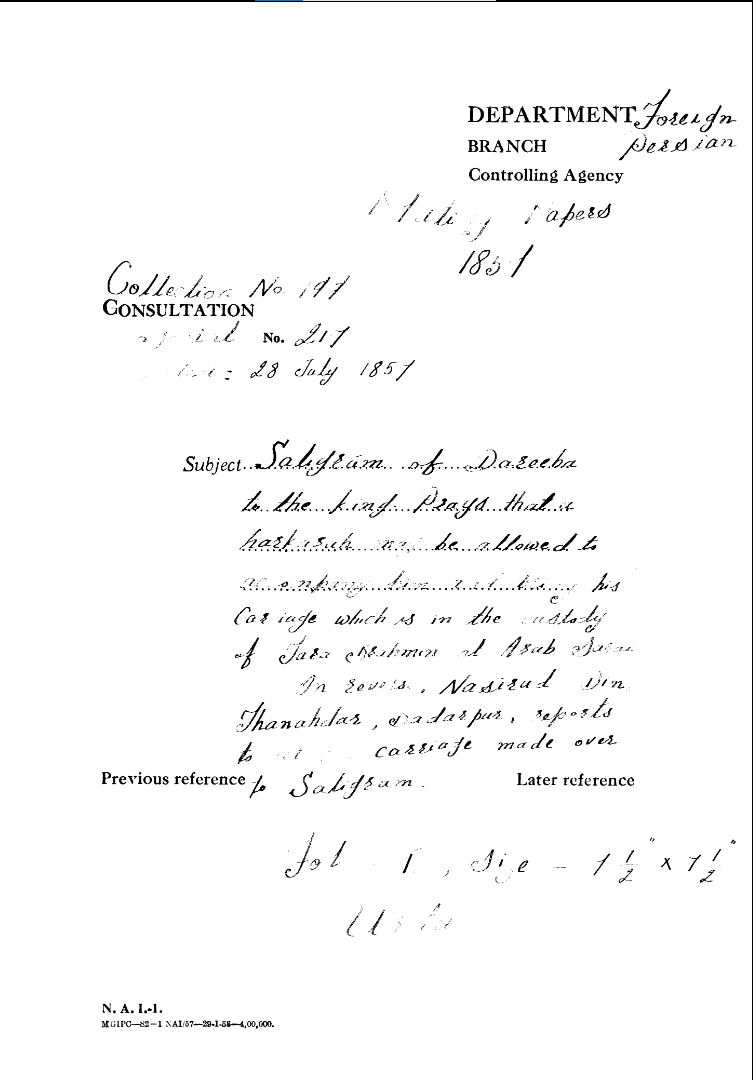 DEPARTMENT Foreign
BRANCH Persian
Controlling Agency
Mutiny Papers
1857
Collection No. 197
CONSULTATION
No. 217
28 July 1857
Subject Saligram of Dareeba
to the king. Prays that a
harkaruh may be allowed to
accompany him and bring his
Carriage which is in the custody
of Tara at Arab Sarai
In reverse, Nasirud Din
Thanahdar, Badarpur, reports
to carriage made over
Previous reference to Saligram. Later reference
Fol - 1, Size - 7 1/2" x 7 1/2"
Urdu
N. A. I.-1.
MGIPC—S2—1 NAI/57—29-1-58—4,00,000.